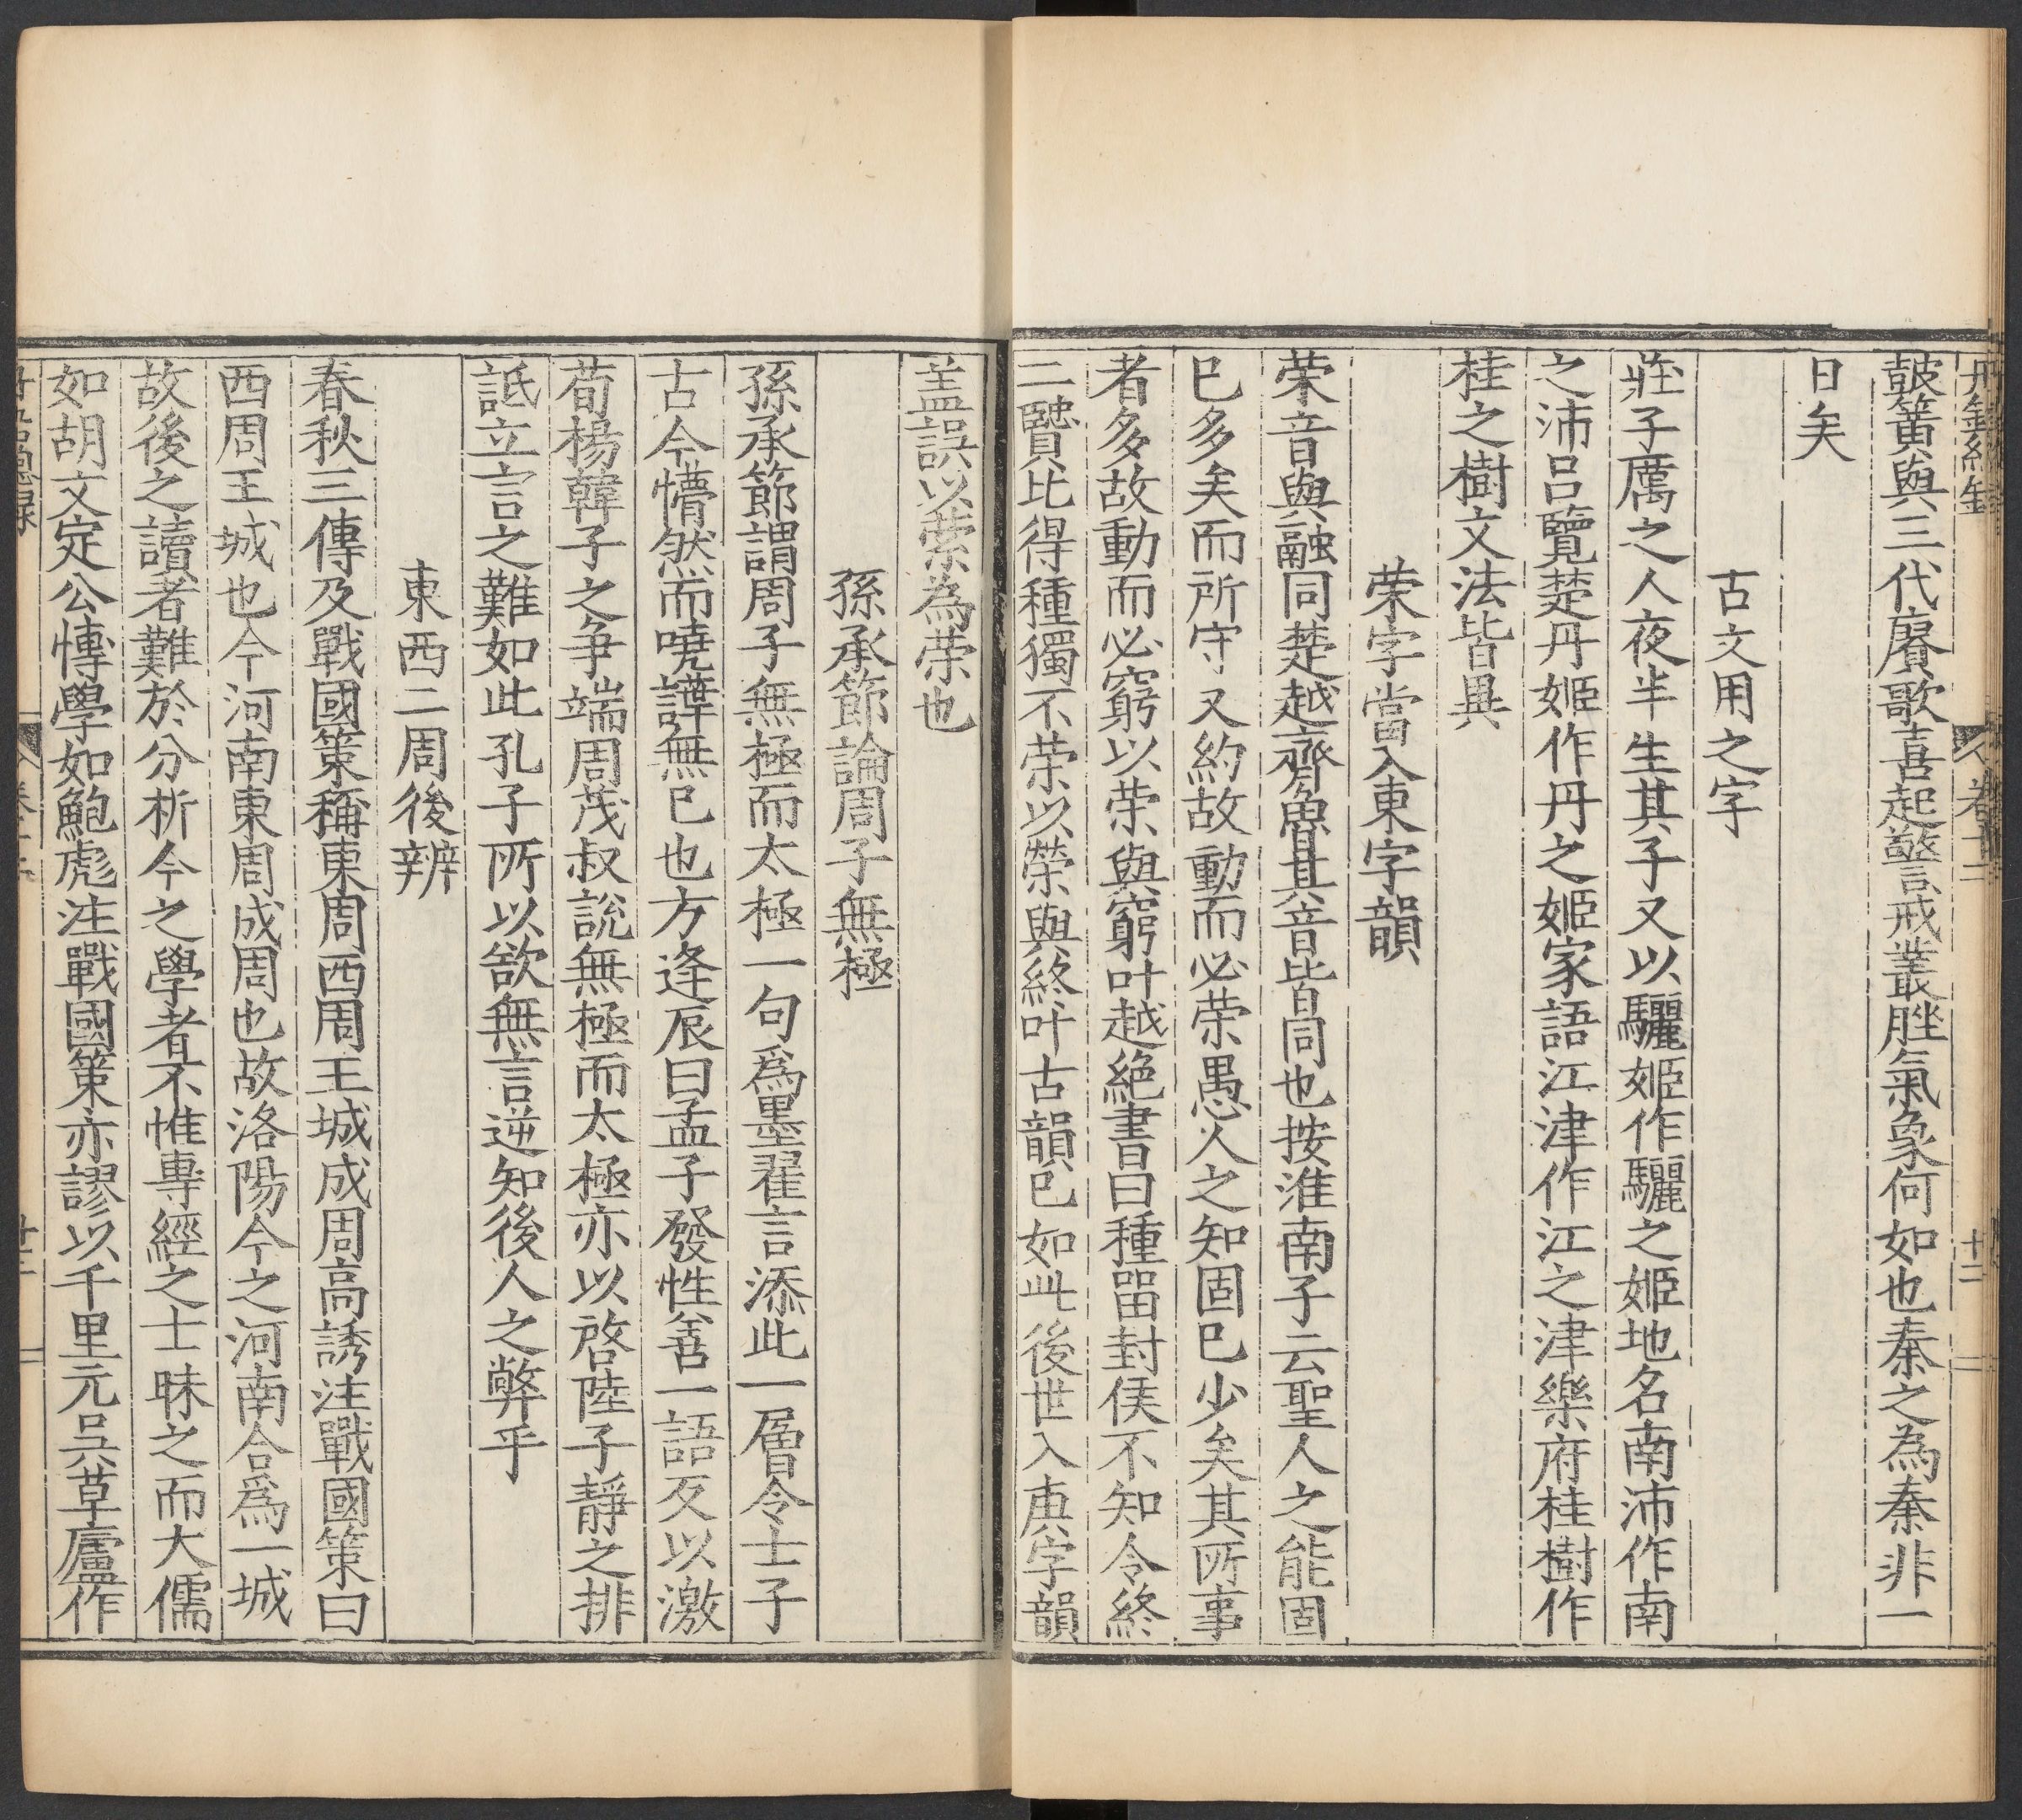 鼓簧與三代賡歌喜起警戒叢脞氣象何如也秦之為秦非一
日矣
古文用之字
莊子厲之人夜半生其子又以驪姬作驪之姬地名南沛作南
之沛呂覽楚丹姬作丹之姬家語江津作江之津樂府桂樹作
桂之樹文法皆異
荣字當入東字韻
荣音與融同楚越齊魯其音皆同也按淮南子云聖人之能固
已多矣而所守又約故動而必荣愚人之知固已少矣其所事
者多故動而必窮以荣與窮叶越絕書曰種留封侯不知令終
二賢比得種獨不荣以榮與終叶古韻已如此後世入庚字韻
盖誤以縈為荣也
孫承節論周子無極
孫承節謂周子無極而太極一句爲墨翟言添此一層令士子
古今懵然而嘵譁無已也方逢辰曰孟子發性善一語反以激
荀楊韓子之争端周茂叔說無極而太極亦以啓陸子靜之排
詆立言之難如此孔子所以欲無言逆知後人之弊乎
東西二周後辨
春秋三傳及戰國策稱東周西周王城成周高誘注戰國策曰
西周王城也今河南東周成周也故洛陽今之河南合爲一城
故後之讀者難於分析今之學者不惟專經之士昧之而大儒
如胡文定公慱學如鮑彪注戰國策亦謬以千里元吳草廬作
卷十二
十二